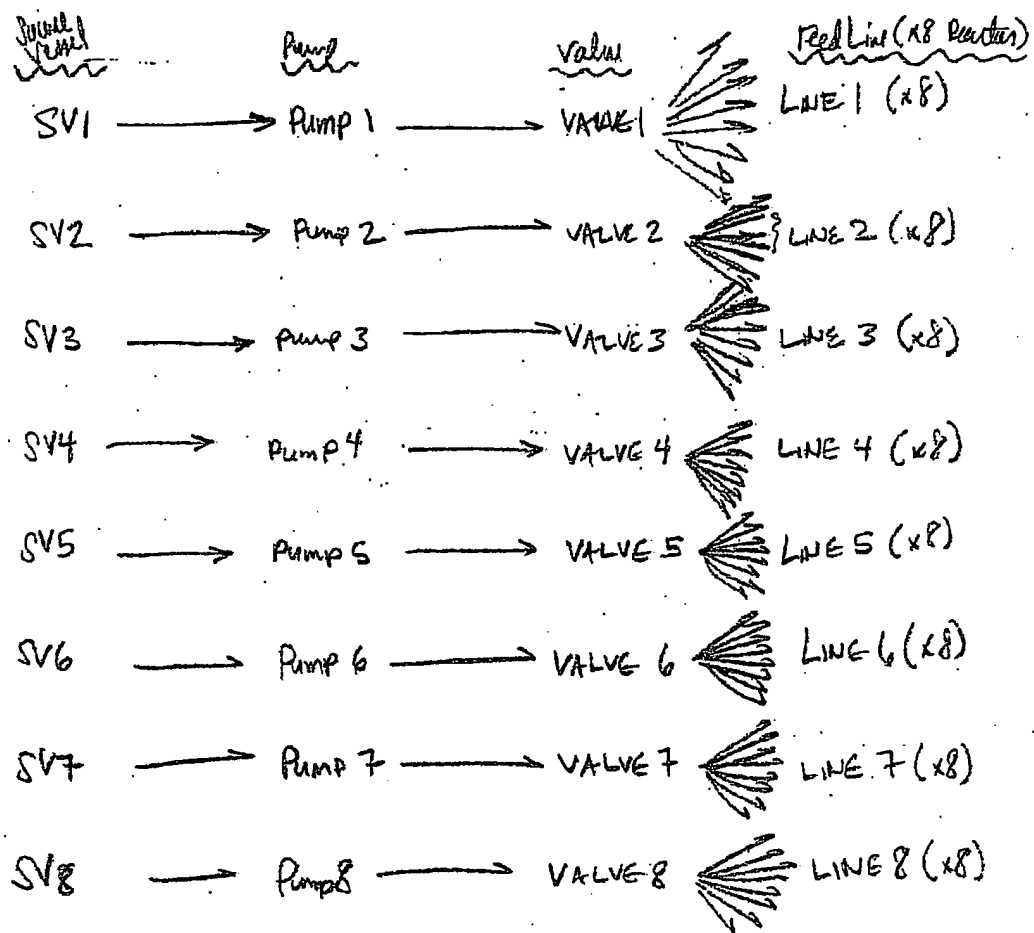 Vessel Pump Valve Feed Line (x8 Reactors)
SV1 Pump 1 VALVE 1 LINE 1 (x8)
SV2 Pump 2 VALVE 2 LINE 2 (x8)
SV3 Pump 3 VALVE 3 LINE 3 (x8)
SV4 Pump 4 VALVE 4 LINE 4 (x8)
SV5 Pump 5 VALVE 5 LINE 5 (x8)
SV6 Pump 6 VALVE 6 LINE 6 (x8)
SV7 Pump 7 VALVE 7 LINE 7 (x8)
SV8 Pump 8 VALVE 8 LINE 8 (x8)